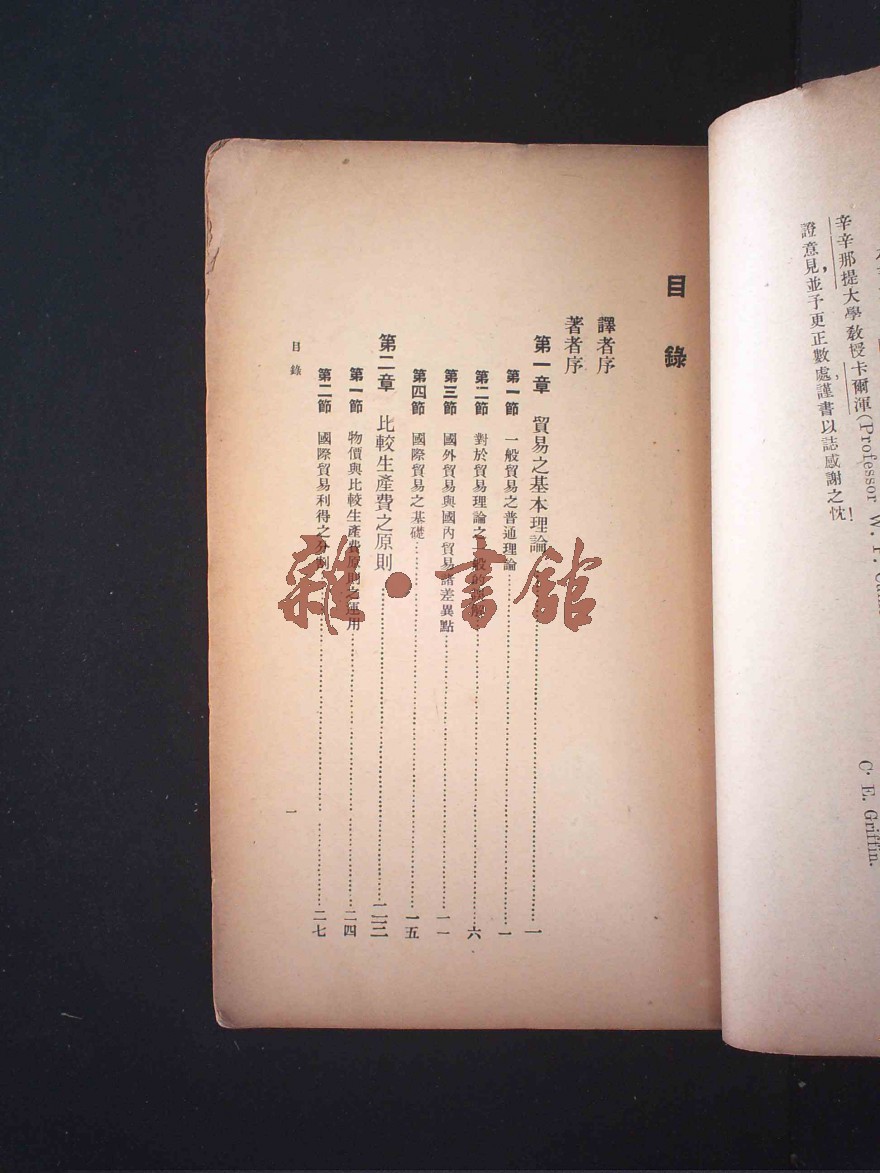 辛辛那提大學教授卡爾渾(Professor W.
證意見,並予更正數處,謹書以誌感謝之忱!
C. E. Griffin.
目錄
譯者序
著者序
第一章 貿易之基本理論……一
第一節 一般貿易之普通理論……一
第二節 對於貿易理論之一般的……六
第三節 國外貿易與國內貿易諸差異點……一一
第四節 國際貿易之基礎……一五
第二章 比較生產費之原則……
第一節 物價與比較生產費原則之運用……二四
第二節 國際貿易利得之分割……二七
目錄
一
雜·書館